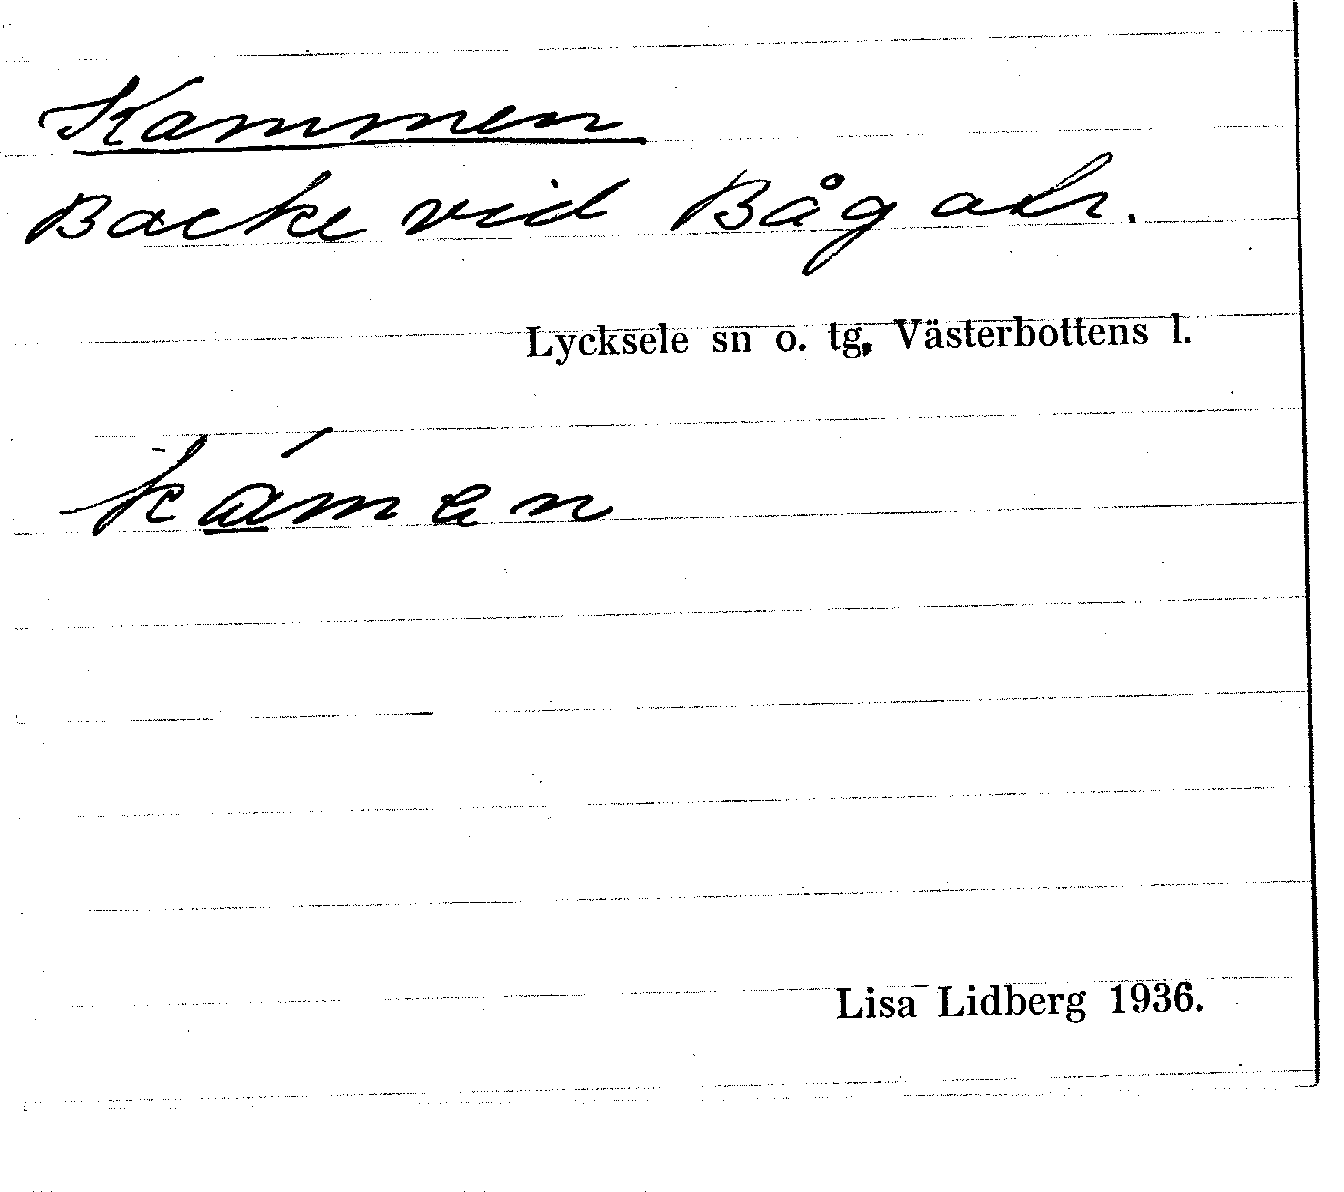 Kammen
Backe vid
Lycksele sn o. tg, Västerbottens l.
Lisa Lidberg 1936.